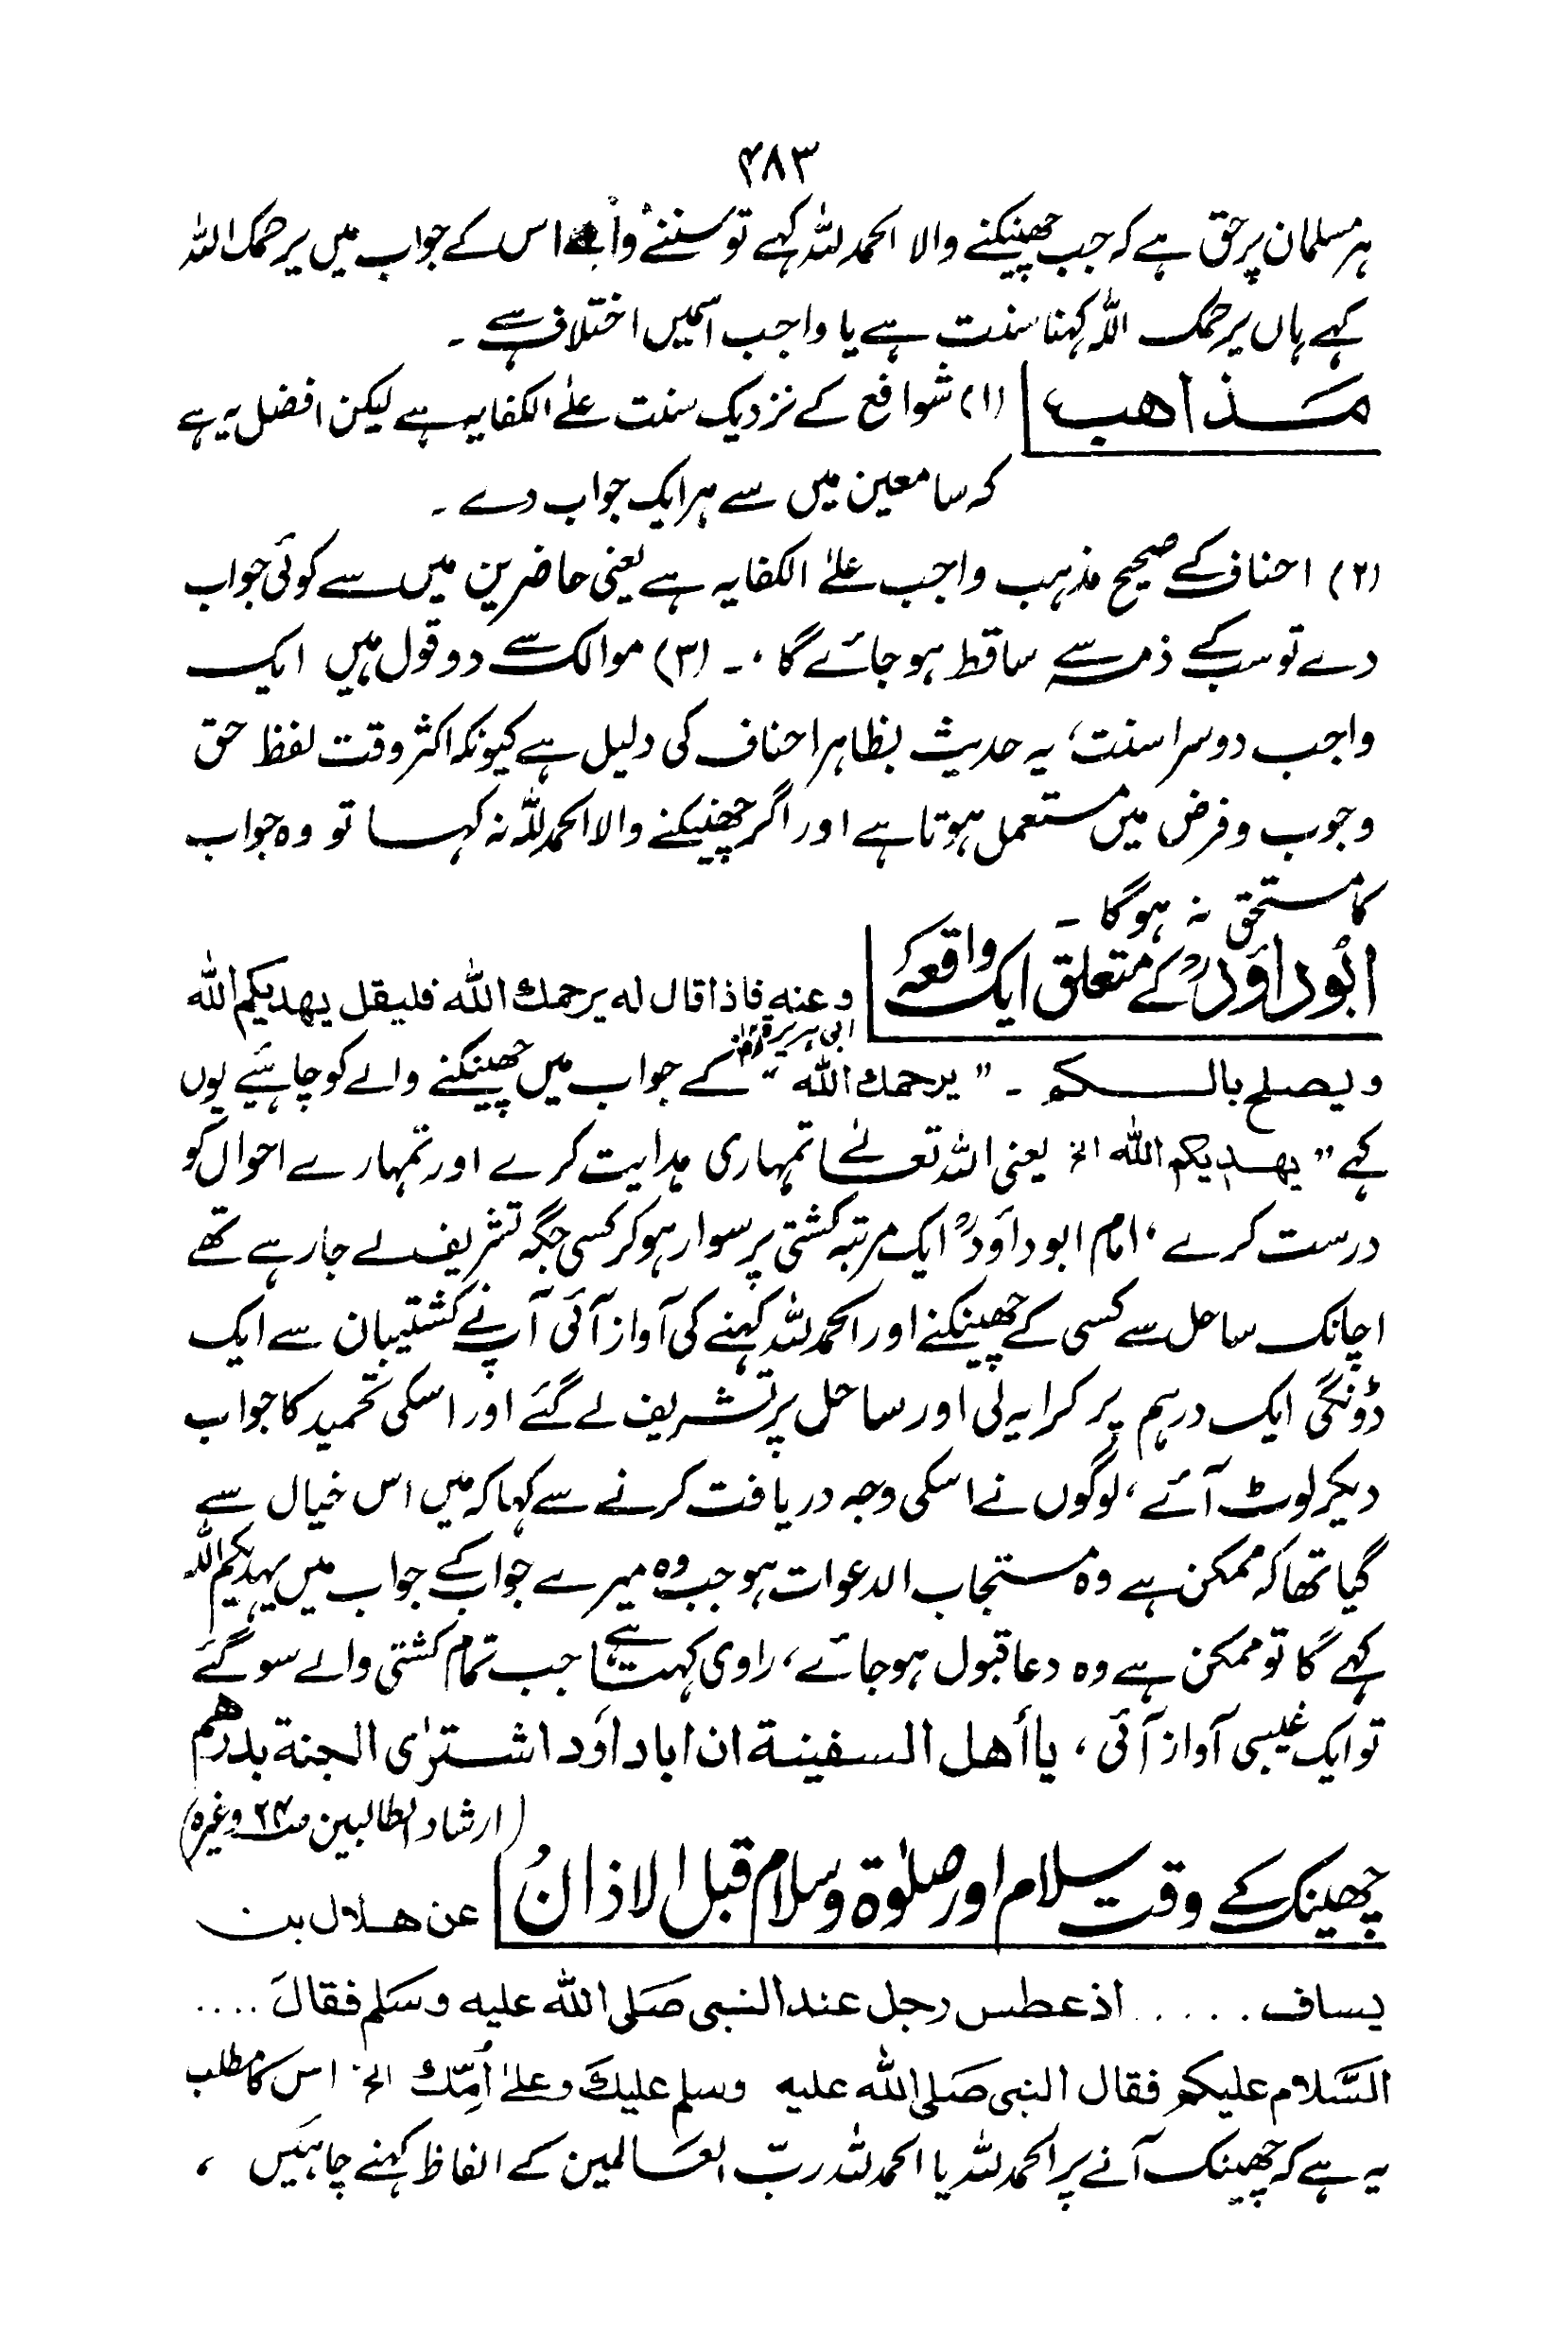 ۴۸۳
ہر مسلمان پر حق ہے کہ جب چھینکنے والا الحمد للہ کہے تو سننے والے اس کے جواب میں یرحمک اللہ
کہے ہاں یرحمک اللہ کہنا سنت ہے یا واجب اسمیں اختلاف ہے ۔
مذاھب (۱) شوافع کے نزدیک سنت علی الکفایہ ہے لیکن افضل یہ ہے
کہ سامعین میں سے ہر ایک جواب دے ۔
(۲) احناف کے صحیح مذہب واجب علی الکفایہ ہے یعنی حاضرین میں سے کوئی جواب
دے تو سب کے ذمہ سے ساقط ہو جائے گا ،۔ (۳) موالک سے دو قول ہیں ایک
واجب دوسرا سنت، یہ حدیث بظاہر احناف کی دلیل ہے کیونکہ اکثر وقت لفظ حق
وجوب و فرض میں مستعمل ہوتا ہے اور اگر چھینکنے والا الحمد للہ نہ کہا تو وہ جواب
کا مستحق نہ ہوگا ۔
ابُو داؤدؒ کے متعلق ایک واقعہ وعنه فاذا قال له يرحمك الله فليقل يهديكم الله
ابی ہریرۃ رض
ويصلح بالكم ۔ " يرحمك الله " کے جواب میں چھینکنے والے کو چاہئیے یوں
کہے " يهديكم الله الخ یعنی اللہ تعالےٰ تمہاری ہدایت کرے اور تمہارے احوال کو
درست کرے ، امام ابو داؤدؒ ایک مرتبہ کشتی پر سوار ہو کر کسی جگہ تشریف لے جارہے تھے
اچانک ساحل سے کسی کے چھینکنے اور الحمد للہ کہنے کی آواز آئی آپ نے کشتیبان سے ایک
ڈونگی ایک درہم پر کرایہ لی اور ساحل پر تشریف لے گئے اور اسکی تحمید کا جواب
دیکر لوٹ آئے ، لوگوں نے اسکی وجہ دریافت کرنے سے کہا کہ میں اس خیال سے
گیا تھا کہ ممکن ہے وہ مستجاب الدعوات ہو جب وہ میرے جواب کے جواب میں یہدیکم اللہ
کہے گا تو ممکن ہے وہ دعا قبول ہو جائے ، راوی کہتا ہے جب تمام کشتی والے سو گئے
تو ایک غیبی آواز آئی ، يا أهل السفينة ان ابا داؤد اشترٰى الجنة بدرهم
(ارشاد الطالبین ص۲۴ وغیرہ)
چھینک کے وقت سلام اور صلوٰۃ وسلام قبل الاذانُ عن هلال بن
يساف ..... اذ عطس رجل عند النبى صَلى الله عليه وسَلم فقالَ ....
السَّلام عليكم فقال النبى صَلى الله عليه وسلم عليكَ وعلىٰ اُمِّك الخ اس کا مطلب
یہ ہے کہ چھینک آنے پر الحمد للہ یا الحمد للہ ربّ العَالمین کے الفاظ کہنے چاہئیں ،